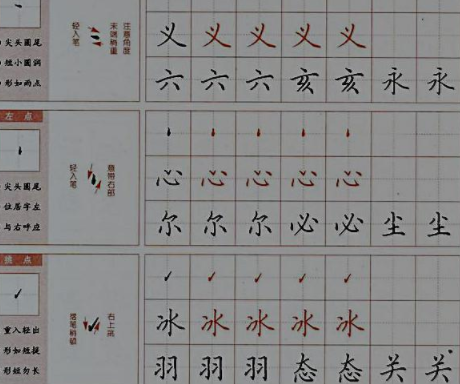 尖头圆尾
短小圆润
形如雨点
轻入笔
末端稍重
注意角度
义 义 义 义 义
六 六 六 亥 亥 永 永
左点
尖头圆尾
位居字左
与右呼应
轻入笔
意带右部
心 心 心 心 心
尔 尔 尔 必 必 尘 尘
挑点
重入轻出
形如短提
形短勿长
落笔稍顿
右上挑
冰 冰 冰 冰 冰
羽 羽 羽 态 态 关 关